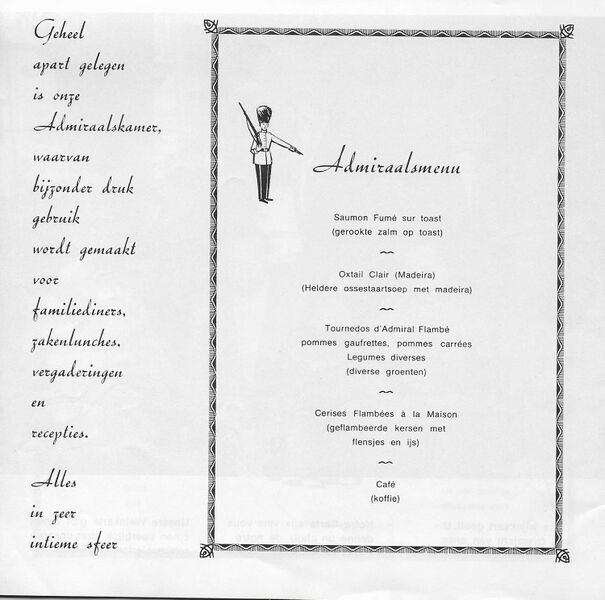 Geheel
apart gelegen
is onze
Admiraalskamer,
waarvan
bijzonder druk
gebruik
wordt gemaakt
voor
familiediners,
zakenlunches,
vergaderingen
en
recepties.
Alles
in zeer
intieme sfeer
Admiraalsmenu
Saumon Fumé sur toast
(gerookte zalm op toast)
Oxtail Clair (Madeira)
(Heldere ossestaartsoep met madeira)
Tournedos d'Admiral Flambé
pommes gaufrettes, pommes carrées
Legumes diverses
(diverse groenten)
Cerises Flambées à la Maison
(geflambeerde kersen met
flensjes en ijs)
Café
(koffie)